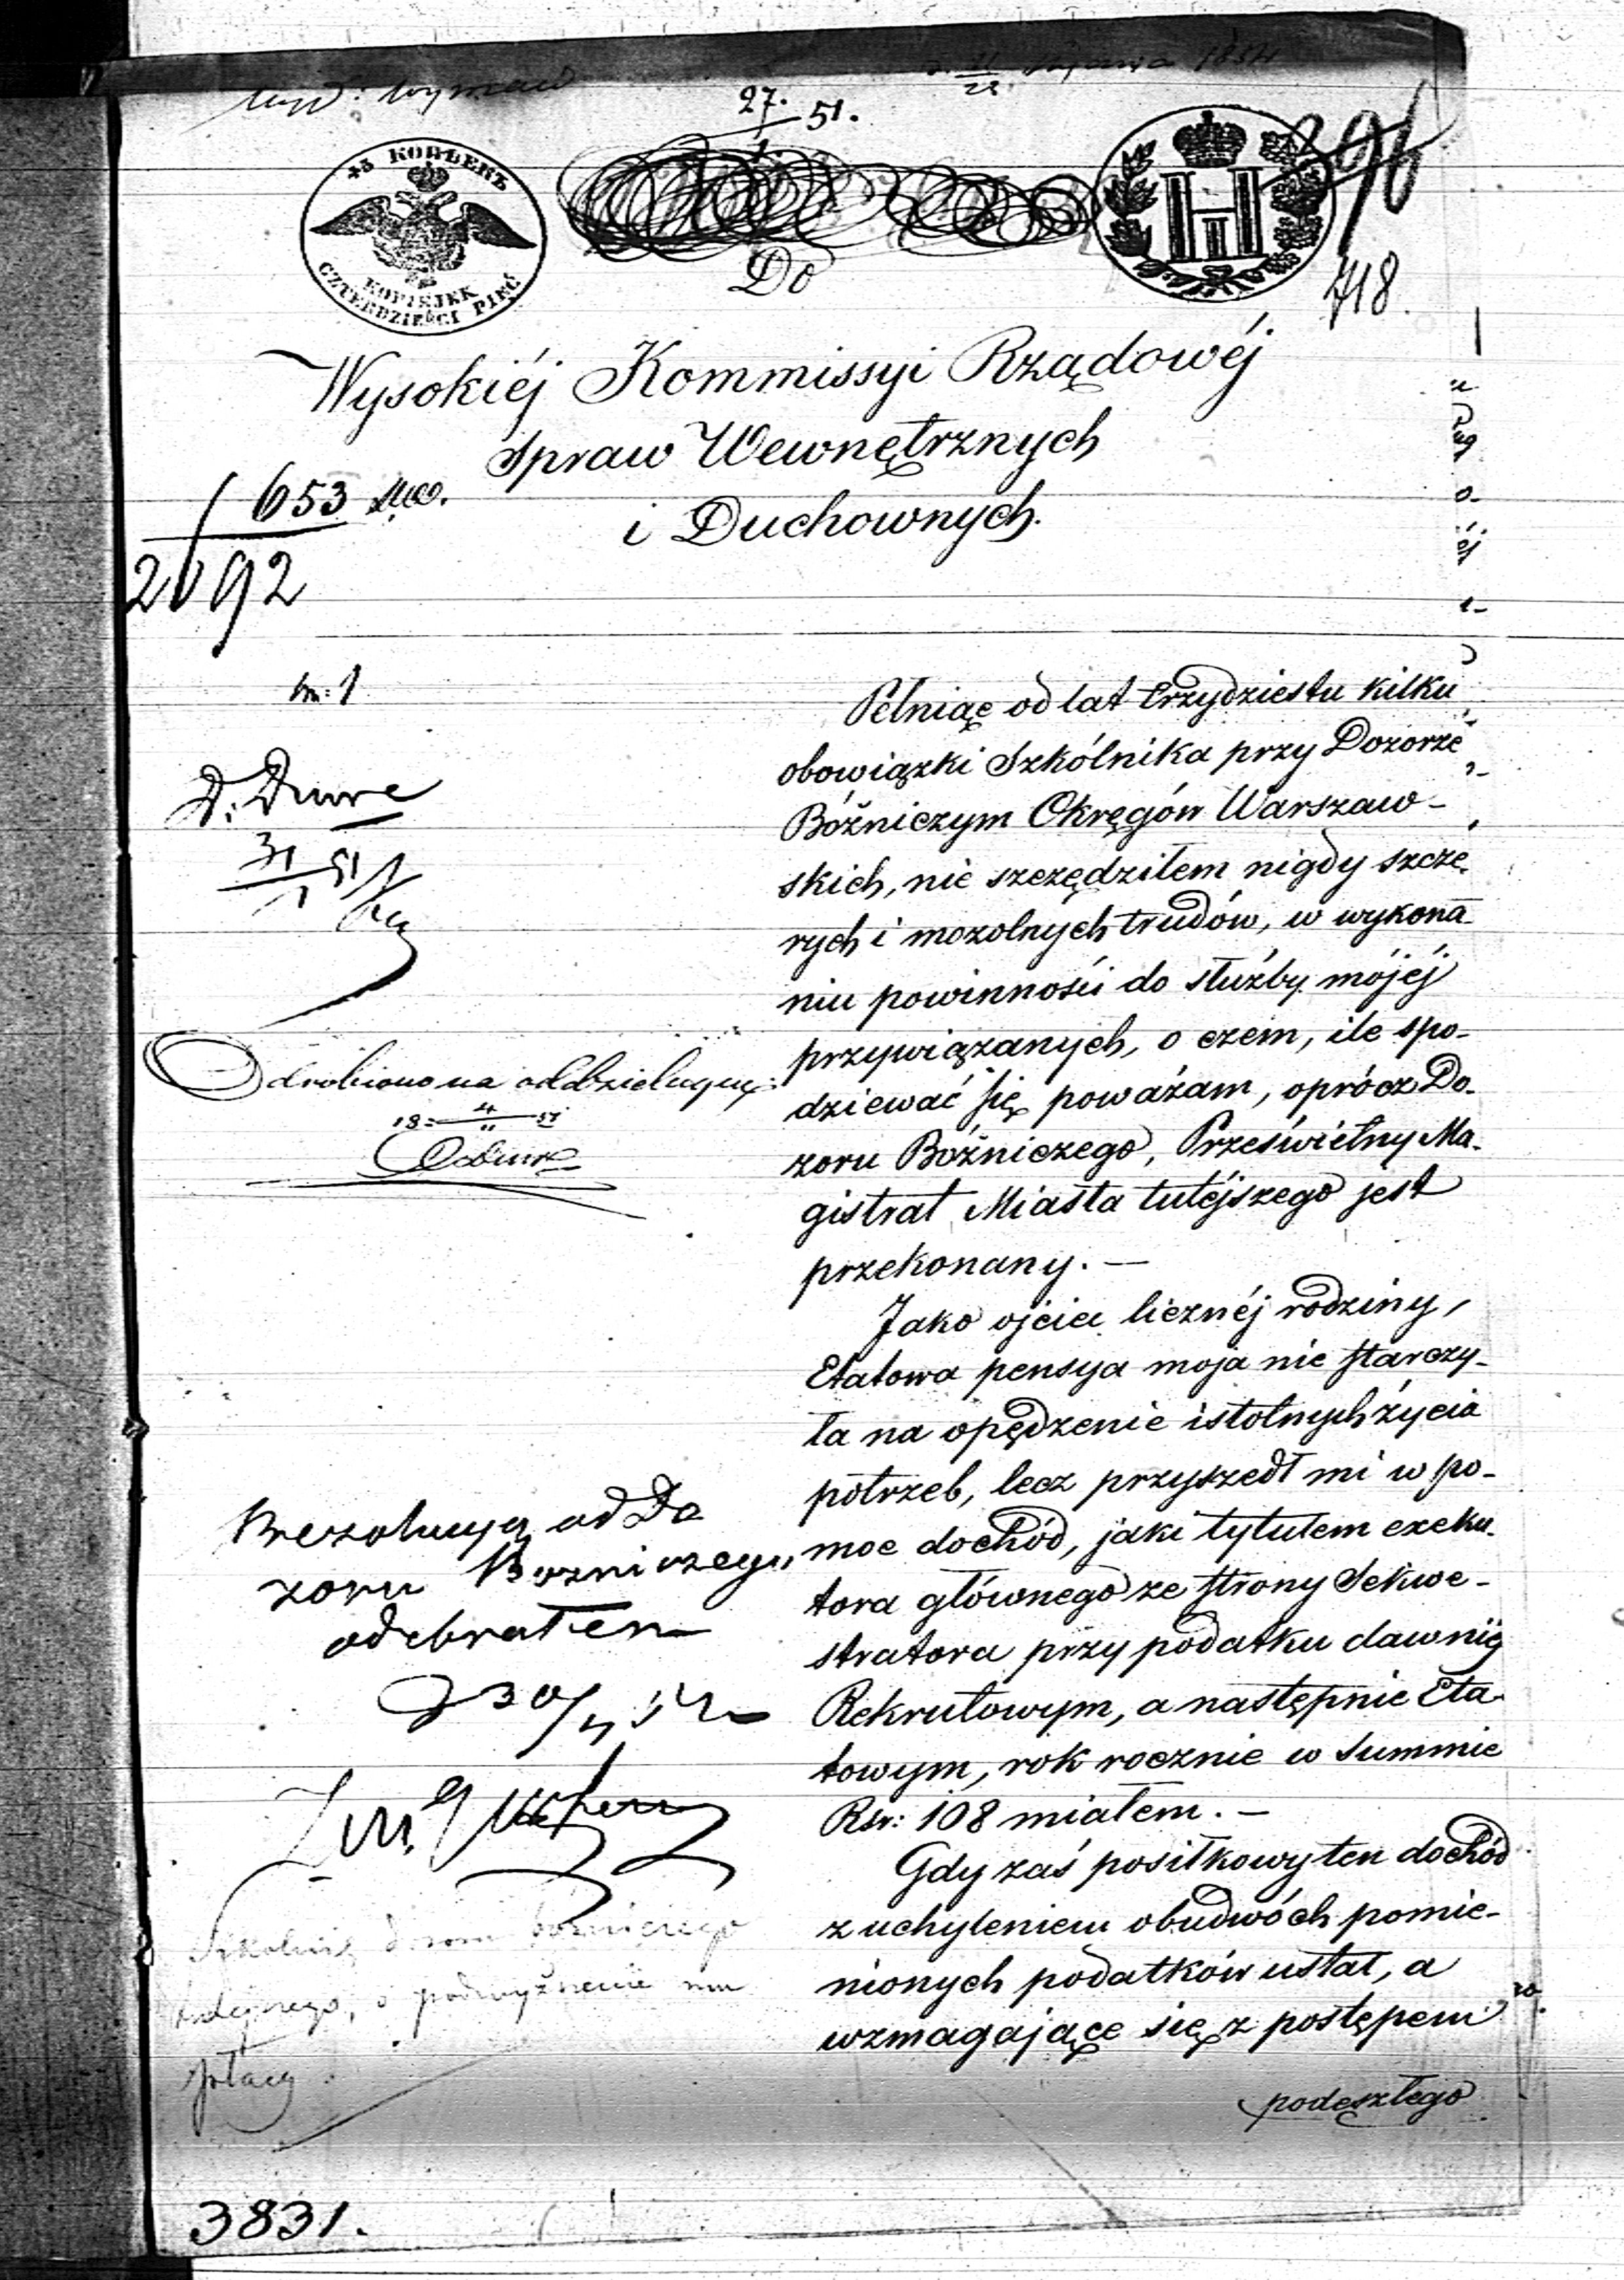 27. 51.
1
45 КОПѢЕКЪ
KOPIEJEK
CZTERDZIEŚCI PIĘĆ
718.
Do
Wysokiéj Kommissyi Rządowéj
Spraw Wewnętrznych
i Duchownych.
653
2092
Pełniąc od lat trzydziestu kilku
obowiązki Szkólnika przy Dozorze
Bóżniczym Okręgów Warszaw-
skich, nie szczędziłem nigdy szcze-
rych i mozolnych trudów, w wykona-
niu powinności do służby mójéj
przywiązanych, o czem, ile spo-
dziewać się poważam, oprócz Do-
zoru Bóżniczego, Prześwietny Ma-
gistrat Miasta tutéjszego jest
przekonany. —
Jako ojciec licznéj rodziny,
Etatowa pensya moja nie starczy-
ła na opędzenie istotnych życia
potrzeb, lecz przyszedł mi w po-
moc dochód, jaki tytułem exeku-
tora głównego ze strony Sekwe-
stratora przy podatku dawniéj
Rekrutowym, a następnie Eta-
towym, rok rocznie w Summie
Rsr: 108 miałem. —
Gdy zaś posiłkowy ten dochód
z uchyleniem obudwóch pomie-
nionych podatków ustał, a
wzmagające się z postępem
podeszłego
31 51
1
Odrobiono na oddzielnym
18 4 51
Rezolucyą od Do
zoru Bozniczego
odebrałem
Szkolnik dozoru bożniczego
tutejszego, o podwyższenie mu
płacy
3831.